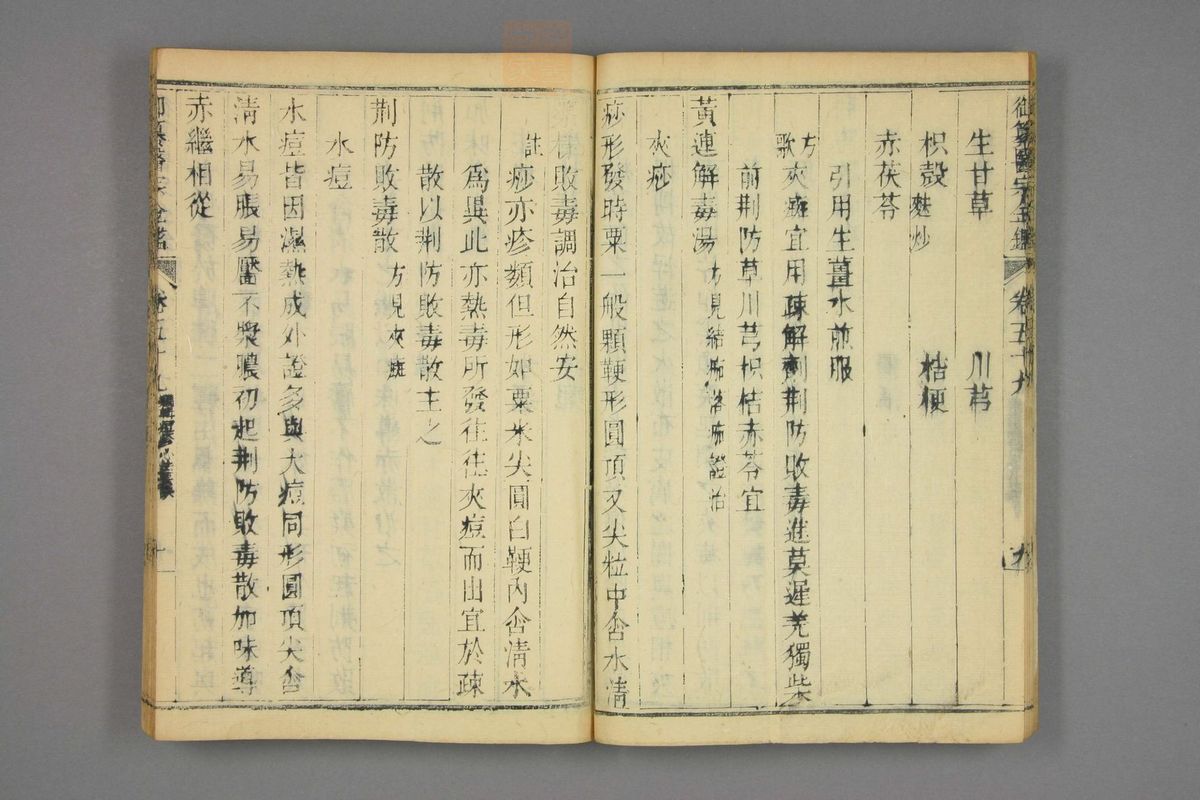 御纂醫宗金鑑 卷五十九
九
生甘草 川芎
枳殼 麩炒 桔梗
赤茯苓
引用生薑水煎服
方歌 夾斑宜用疎解劑荆防敗毒進莫遲羌獨柴
前荆防草川芎枳桔赤苓宜
黃連解毒湯 方見結痂落痂證治
夾痧
痧形發時粟一般顆鞕形圓頂又尖粒中含水清
敗毒調治自然安
註 痧亦疹類但形如粟米尖圓白鞕內含清水
爲異此亦熱毒所發往徃夾痘而出宜於疎
散以荆防敗毒散主之
荆防敗毒散 方現夾斑
水痘
水痘皆因濕熱成外證多與大痘同形圓頂尖含
清水易脹易靨不漿膿初起荆防敗毒散加味導
赤繼相從
御纂醫宗金鑑 卷五十九
十